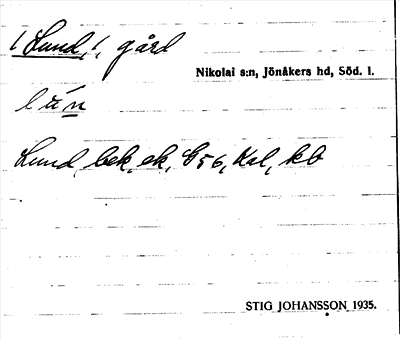 (Lund,), gård
Nikolai s:n, Jönåkers hd, Söd. l.
lún
Lund, bek, ek, G56, Kal, kb
STIG JOHANSSON 1935.